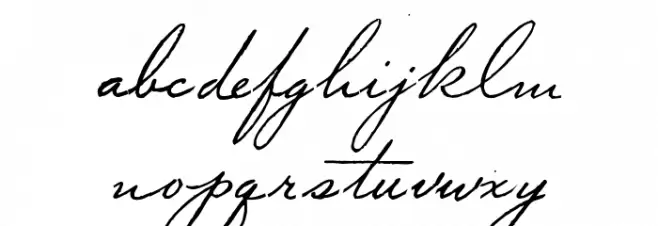 abcdefghijklm
nopqrstuvwxy